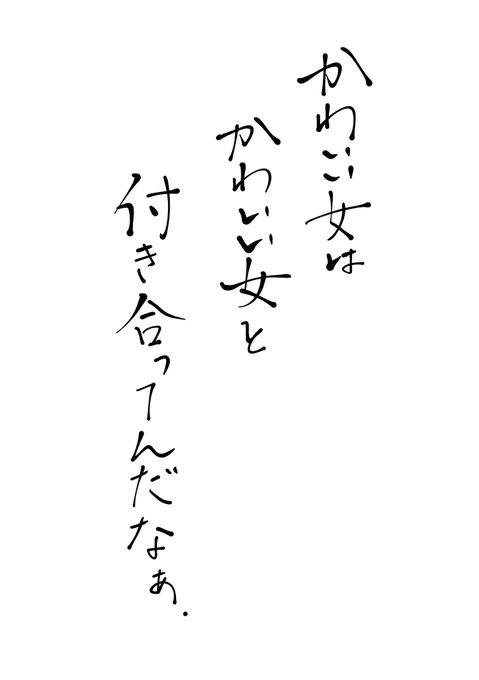 かわいい女は
かわいい女と
付き合ってんだなぁ.